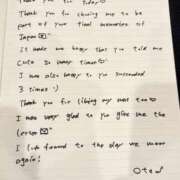 Thank you for today♡
Thank you for choosing me to be
part of your final memories of
Japan
It made me happy that you told me
cute so many times♡
I was also happy to you succeeded
3 times :)
Thank you for liking my
I was very glad to you give me the
I look forward to the day we meet
again!